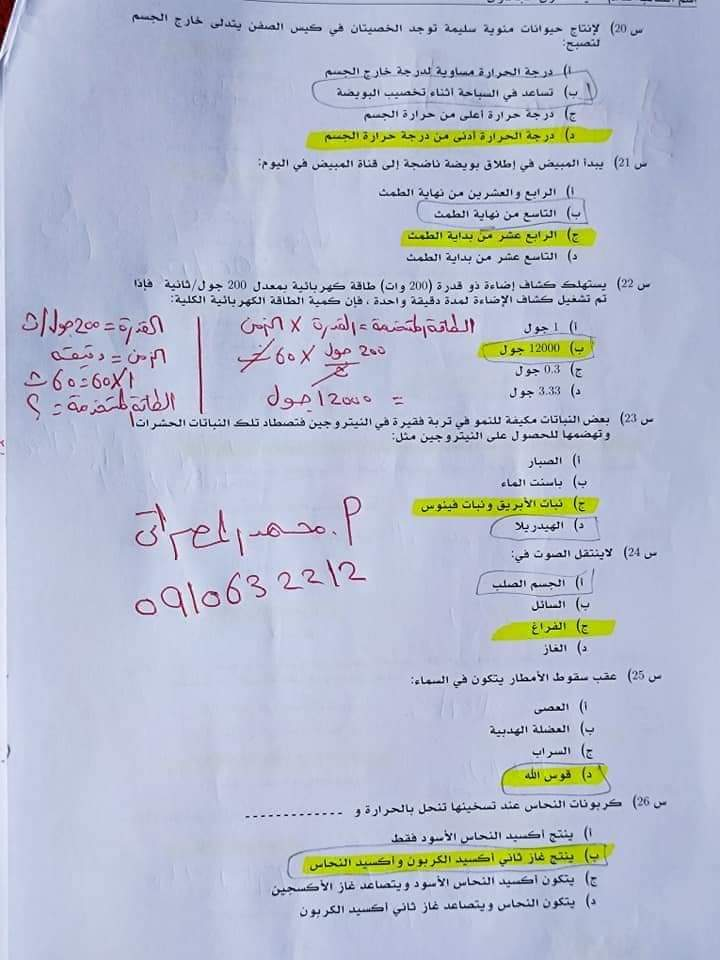 س 20) لإنتاج حيوانات منوية سليمة توجد الخصيتان في كيس الصفن يتدلى خارج الجسم
لتصبح:
أ) درجة الحرارة مساوية لدرجة خارج الجسم
ب) تساعد في السباحة أثناء تخصيب البويضة
ج) درجة حرارة أعلى من حرارة الجسم
د) درجة الحرارة أدنى من درجة حرارة الجسم
س 21) يبدأ المبيض في إطلاق بويضة ناضجة إلى قناة المبيض في اليوم:
أ) الرابع والعشرين من نهاية الطمث
ب) التاسع من نهاية الطمث
ج) الرابع عشر من بداية الطمث
د) التاسع عشر من بداية الطمث
س 22) يستهلك كشاف إضاءة ذو قدرة (200 وات) طاقة كهربائية بمعدل 200 جول/ثانية فإذا
تم تشغيل كشاف الإضاءة لمدة دقيقة واحدة ، فإن كمية الطاقة الكهربائية الكلية:
أ) 1 جول
ب) 12000 جول
ج) 0.3 جول
د) 3.33 جول
الطاقة المستخدمة = القدرة × الزمن
200 جول/ث × 60 ث
= 12000 جول
القدرة = 200 جول/ث
الزمن = دقيقة
1×60 = 60 ث
الطاقة المستخدمة = ؟
س 23) بعض النباتات مكيفة للنمو في تربة فقيرة في النيتروجين فتصطاد تلك النباتات الحشرات
وتهضمها للحصول على النيتروجين مثل:
أ) الصبار
ب) باسنت الماء
ج) نبات الأبريق ونبات فينوس
د) الهيدريلا
م. محمد المصراتي
0910632212
س 24) لاينتقل الصوت في:
أ) الجسم الصلب
ب) السائل
ج) الفراغ
د) الغاز
س 25) عقب سقوط الأمطار يتكون في السماء:
أ) العصى
ب) العضلة الهدبية
ج) السراب
د) قوس الله
س 26) كربونات النحاس عند تسخينها تنحل بالحرارة و --------------
أ) ينتج أكسيد النحاس الأسود فقط
ب) ينتج غاز ثاني أكسيد الكربون وأكسيد النحاس
ج) يتكون أكسيد النحاس الأسود ويتصاعد غاز الأكسجين
د) يتكون النحاس ويتصاعد غاز ثاني أكسيد الكربون